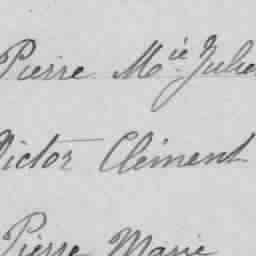 Pierre Mie Julie
Victor Clément
Pierre Marie